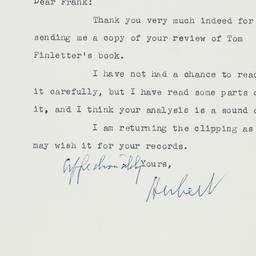 Dear Frank:
Thank you very much indeed for
sending me a copy of your review of Tom
Finletter's book.
I have not had a chance to read
it carefully, but I have read some parts o
it, and I think your analysis is a sound o
I am returning the clipping as
may wish it for your records.
Affectionately Yours,
Herbert